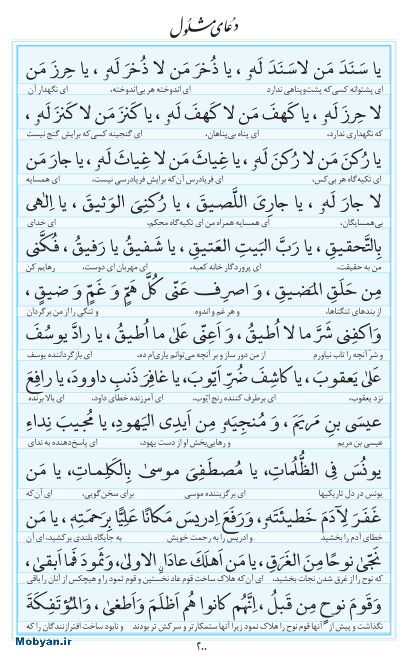 دعای مشلول
یا سَنَدَ مَن لاسَنَدَ لَهُ، یا ذُخرَ مَن لا ذُخرَ لَهُ، یا حِرزَ مَن
ای پشتوانه کسی که پشت‌وپناهی ندارد ای اندوخته هر بی‌اندوخته، ای نگهدار آن
لا حِرزَ لَهُ، یا کَهفَ مَن لا کَهفَ لَهُ، یا کَنزَ مَن لا کَنزَ لَهُ،
که نگهداری ندارد. ای پناه بی‌پناهان. ای گنجینه کسی که برایش گنج نیست
یا رُکنَ مَن لا رُکنَ لَهُ، یا غِیاثَ مَن لا غِیاثَ لَهُ، یا جارَ مَن
ای تکیه‌گاه هر بی‌کس، ای فریادرس آن که برایش فریادرسی نیست، ای همسایه
لا جارَ لَهُ، یا جارِیَ اللَّصیقَ، یا رُکنِیَ الوَثیقَ، یا اِلٰهی
بی‌همسایگان. ای همسایه همراه من ای تکیه‌گاه محکم. ای خدای
بِالتَّحقیقِ، یا رَبَّ البَیتِ العَتیقِ، یا شَفیقُ یا رَفیقُ، فُکَّنی
من به حقیقت، ای پروردگار خانه کعبه، ای مهربان ای دوست، رهایم کن
مِن حَلَقِ المَضیقِ، وَ اصرِف عَنّی کُلَّ هَمٍّ وَ غَمٍّ وَ ضیقٍ،
از بندهای تنگناها، و هر غم و اندوه و تنگی را از من برگردان
وَ اکفِنی شَرَّ ما لا اُطیقُ، وَ اَعِنّی عَلیٰ ما اُطیقُ، یا رادَّ یوسُفَ
و شر آنچه را تاب نیاورم از من دور ساز و بر آنچه می‌توانم یاری‌ام ده، ای بازگرداننده یوسف
عَلیٰ یَعقوبَ، یا کاشِفَ ضُرِّ اَیّوبَ، یا غافِرَ ذَنبِ داوودَ، یا رافِعَ
نزد یعقوب، ای برطرف کننده رنج ایوب، ای آمرزنده خطای داود، ای بالابرنده
عیسَی بنِ مَریَمَ، وَ مُنجِیَهُ مِن اَیدِی الیَهودِ، یا مُجیبَ نِداءِ
عیسی بن مریم و رهایی‌بخش او از دست یهود، ای پاسخ‌دهنده به ندای
یونُسَ فِی الظُّلُماتِ، یا مُصطَفِیَ موسیٰ بِالکَلِماتِ، یا مَن
یونس در دل تاریکیها ای برگزیننده موسی برای سخن‌گویی، ای آن که
غَفَرَ لِآدَمَ خَطیئَتَهُ، وَ رَفَعَ اِدریسَ مَکانًا عَلِیًّا بِرَحمَتِهِ، یا مَن
خطای آدم را بخشید و ادریس را به رحمت خویش به جایگاه بلندی برکشید، ای آن
نَجّیٰ نوحًا مِنَ الغَرَقِ، یا مَن اَهلَکَ عادًا الاولیٰ، وَ ثَمودَ فَما اَبقیٰ،
که نوح را از غرق شدن نجات بخشید، ای آن که هلاک ساخت قوم عاد نخستین و قوم ثمود را و هیچکس از آنان را باقی
وَ قَومَ نوحٍ مِن قَبلُ، اِنَّهُم کانوا هُم اَظلَمَ وَ اَطغیٰ، وَ المُؤتَفِکَةَ
نگذاشت و پیش از آنها قوم نوح را هلاک نمود زیرا آنها ستمکارتر و سرکش تر بودند و نابود ساخت افترازنندگان را که
۲۰۰
Mobyan.ir